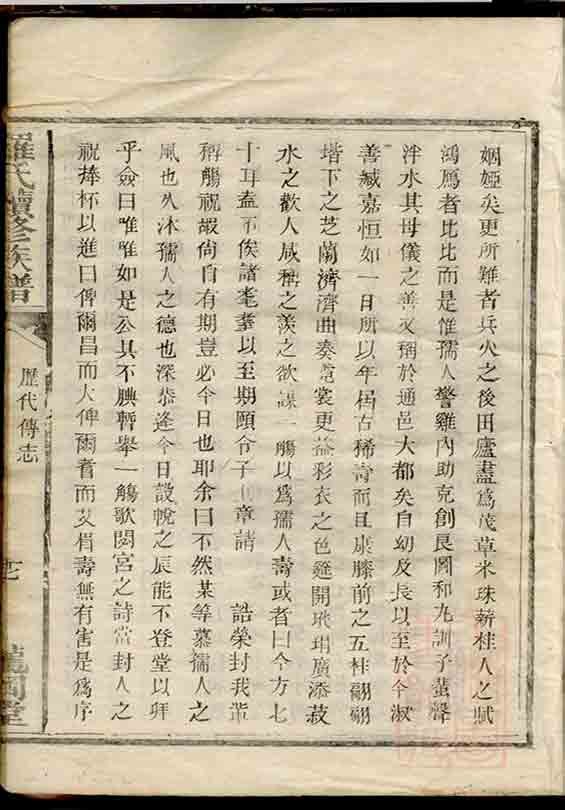 姻婭矣更所難者兵火之後田廬盡爲茂草米珠薪桂人之賦
鴻鴈者比比而是惟孺人警雞內助克創艮圖和丸訓子蜚聲
泮水其母儀之善又稱於通邑大都矣自幼及長以至於今淑
善臧嘉恒如一日所以年屆古稀壽而且康膝前之五桂翩翩
堦下之芝蘭濟濟曲奏霓裳更益彩衣之色筵開玳瑁廣添菽
水之歡人咸稱之羨之欲謀一觴以爲孺人壽或者曰今方七
十耳盍不俟諸耄耋以至期頤令子 章諸 誥榮封我輩
稱觴祝嘏尙自有期豈必今日也耶余曰不然某等慕孺人之
風也久沐孺人之德也深恭逢今日設帨之辰能不登堂以拜
乎僉曰唯唯如是公其不腆暫舉一觴歌閟宮之詩當封人之
祝捧杯以進曰俾爾昌而大俾爾耆而艾眉壽無有害是爲序
羅氏續修族譜
歷代傳志